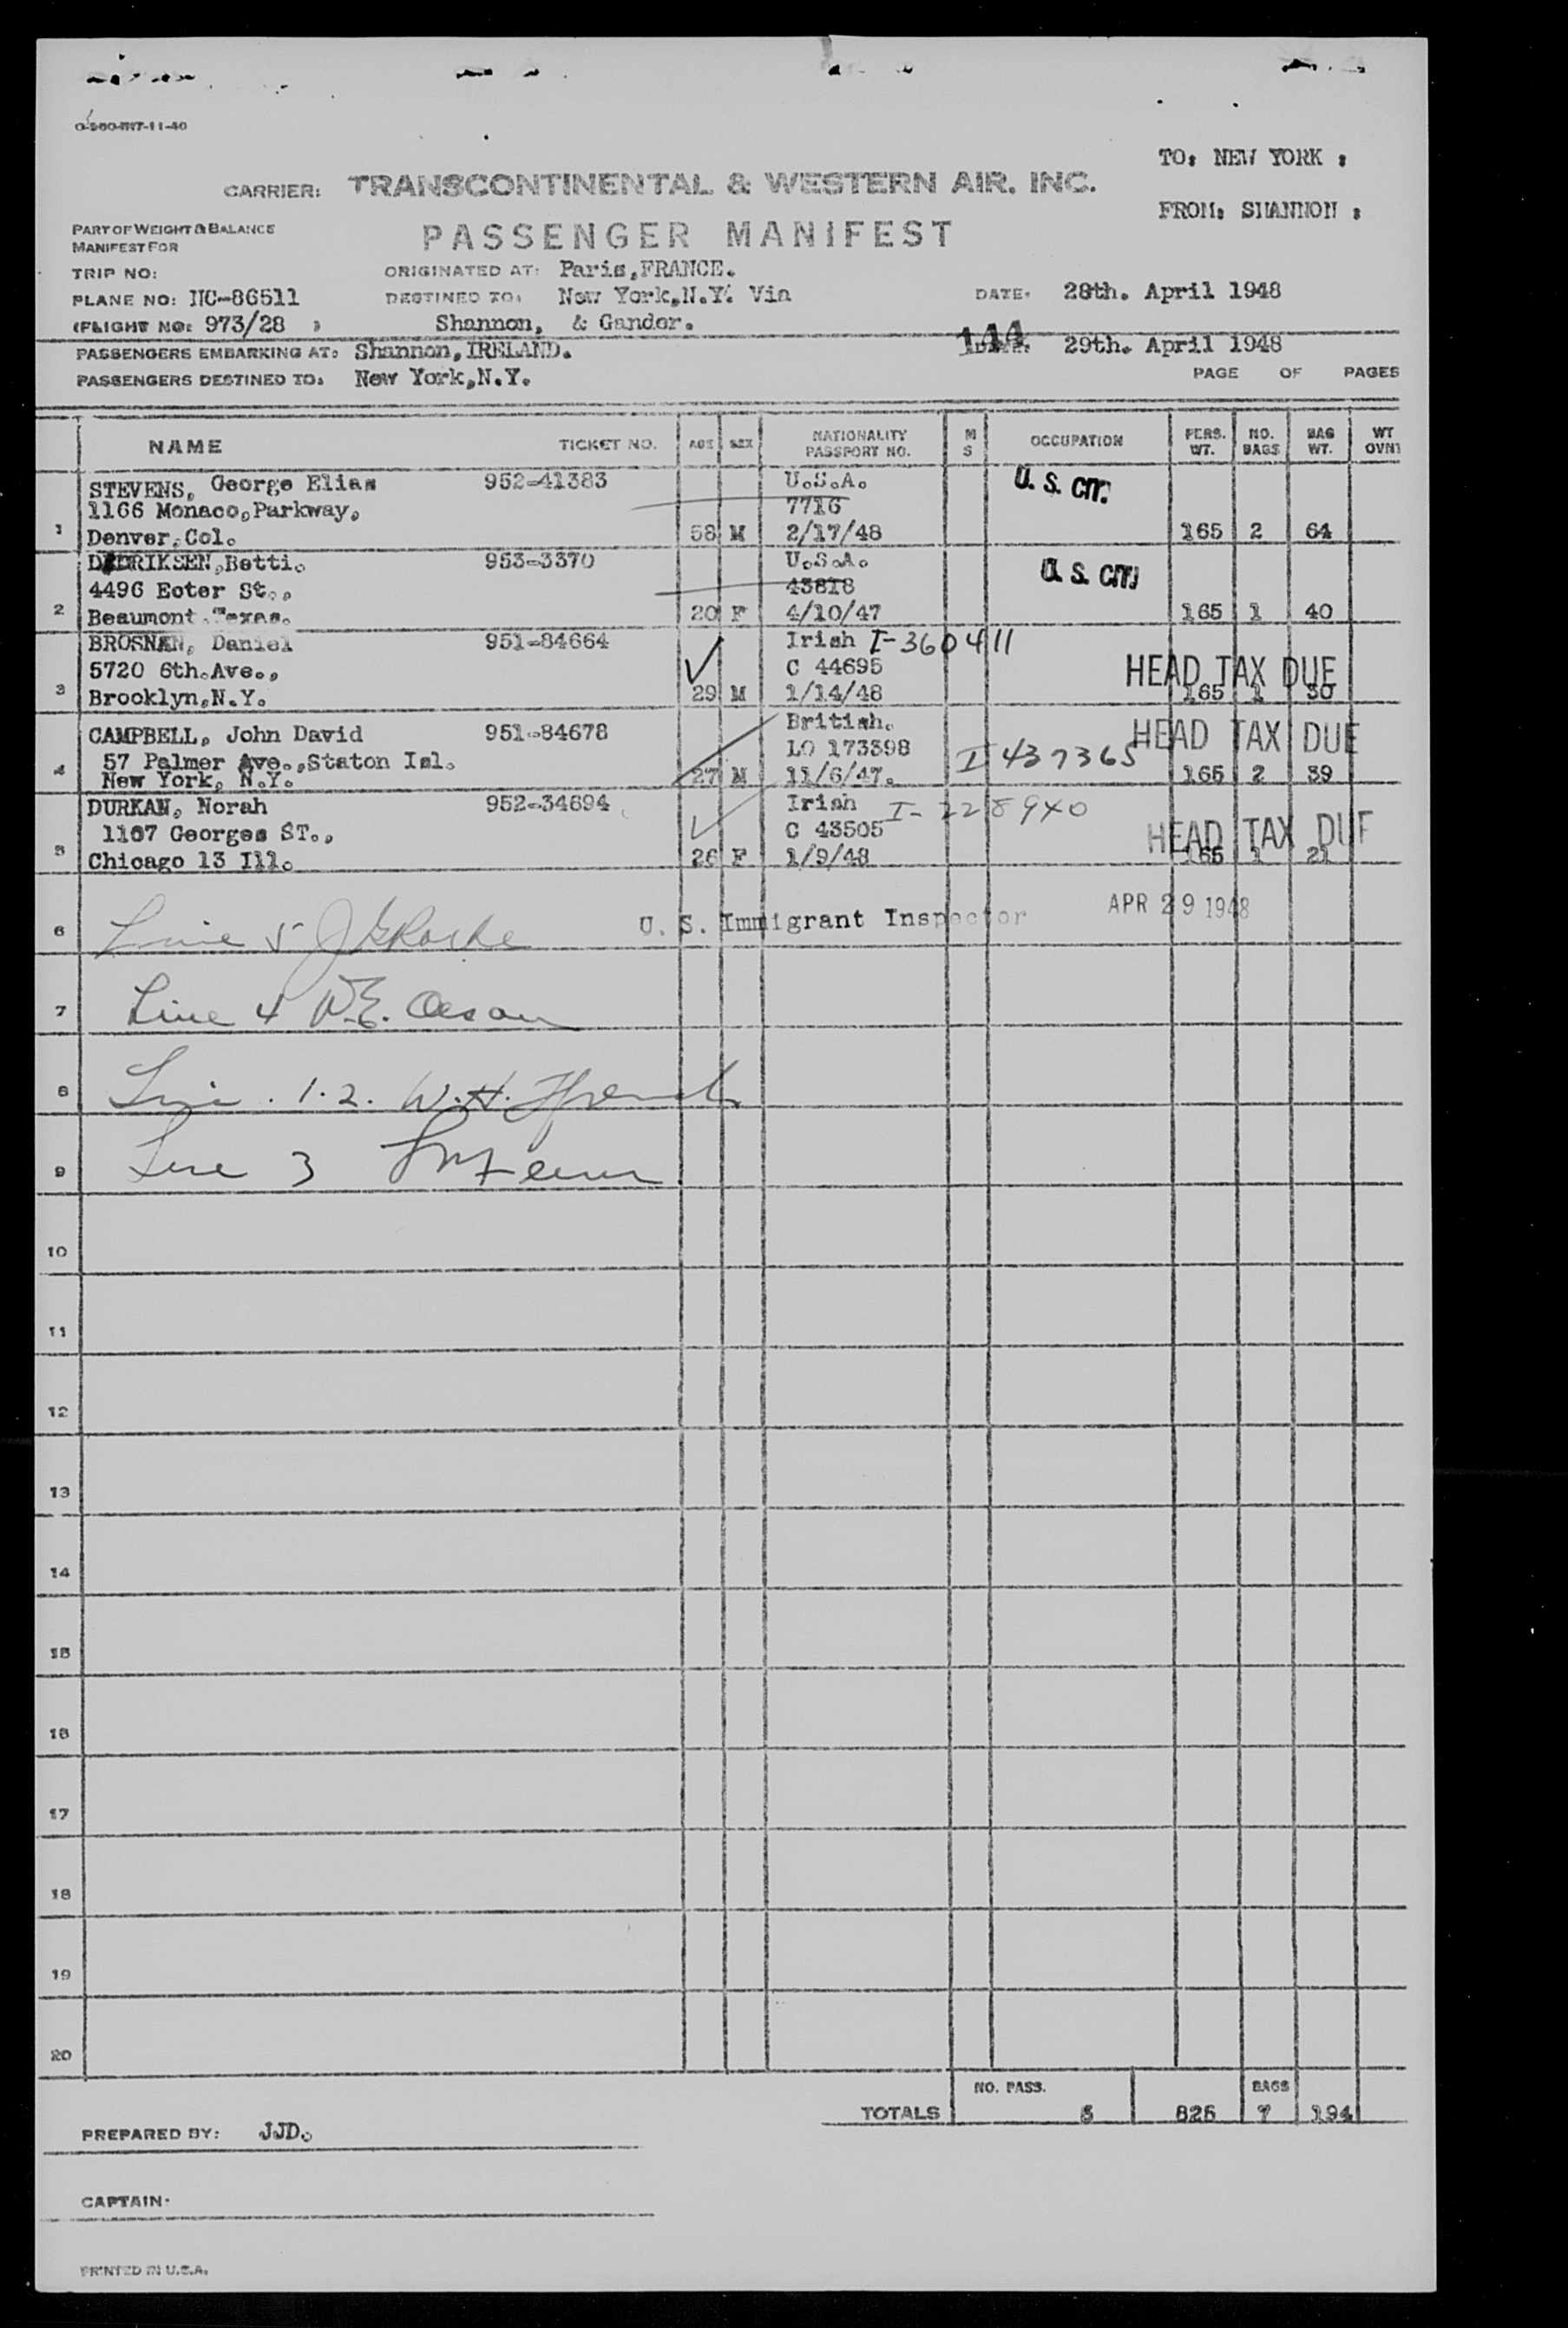 TO: NEW YORK :
CARRIER: TRANSCONTINENTAL & WESTERN AIR. INC.
FROM: SHANNON :
PART OF WEIGHT & BALANCE
MANIFEST FOR
PASSENGER MANIFEST
TRIP NO:
ORIGINATED AT: Paris,FRANCE.
PLANE NO: NC-86511
DESTINED TO: New York,N.Y. Via
DATE: 28th. April 1948
(FLIGHT NO: 973/28 )
Shannon, & Gander.
144
PASSENGERS EMBARKING AT: Shannon,IRELAND.
DATE: 29th. April 1948
PASSENGERS DESTINED TO: New York,N.Y.
PAGE OF PAGES
NAME TICKET NO. AGE SEX NATIONALITY PASSPORT NO. M S OCCUPATION PERS. WT. NO. BAGS BAG WT. WT
STEVENS, George Elias 952-41383 U.S.A. U.S. CIT.
1166 Monaco,Parkway, 7716
1 Denver,Col. 58 M 2/17/48 165 2 64
DEDRIKSEN,Betti. 953-3370 U.S.A. U.S. CIT
4496 Ecter St., 43818
2 Beaumont.Texas. 20 F 4/10/47 165 1 40
BROSNAN, Daniel 951-84664 Irish I-360411
5720 6th.Ave., C 44695 HEAD TAX DUE
3 Brooklyn,N.Y. 29 M 1/14/48 165 1 30
CAMPBELL, John David 951-84678 British. HEAD TAX DUE
57 Palmer Ave.,Staton Isl. LO 173398 I 437365
4 New York, N.Y. 27 M 11/6/47. 165 2 39
DURKAN, Norah 952-34694 Irish I-228940
1107 Georges ST., C 43505 HEAD TAX DUE
5 Chicago 13 Ill. 26 F 1/9/48 165 1 21
6 Line 5 U. S. Immigrant Inspector APR 29 1948
7 Line 4 W.E. Olson
8 Line . 1.2. W.H.
9 Line 3
10
11
12
13
14
15
16
17
18
19
20
NO. PASS. BAGS
TOTALS 5 825 7 194
PREPARED BY: JJD.
CAPTAIN:
PRINTED IN U.S.A.